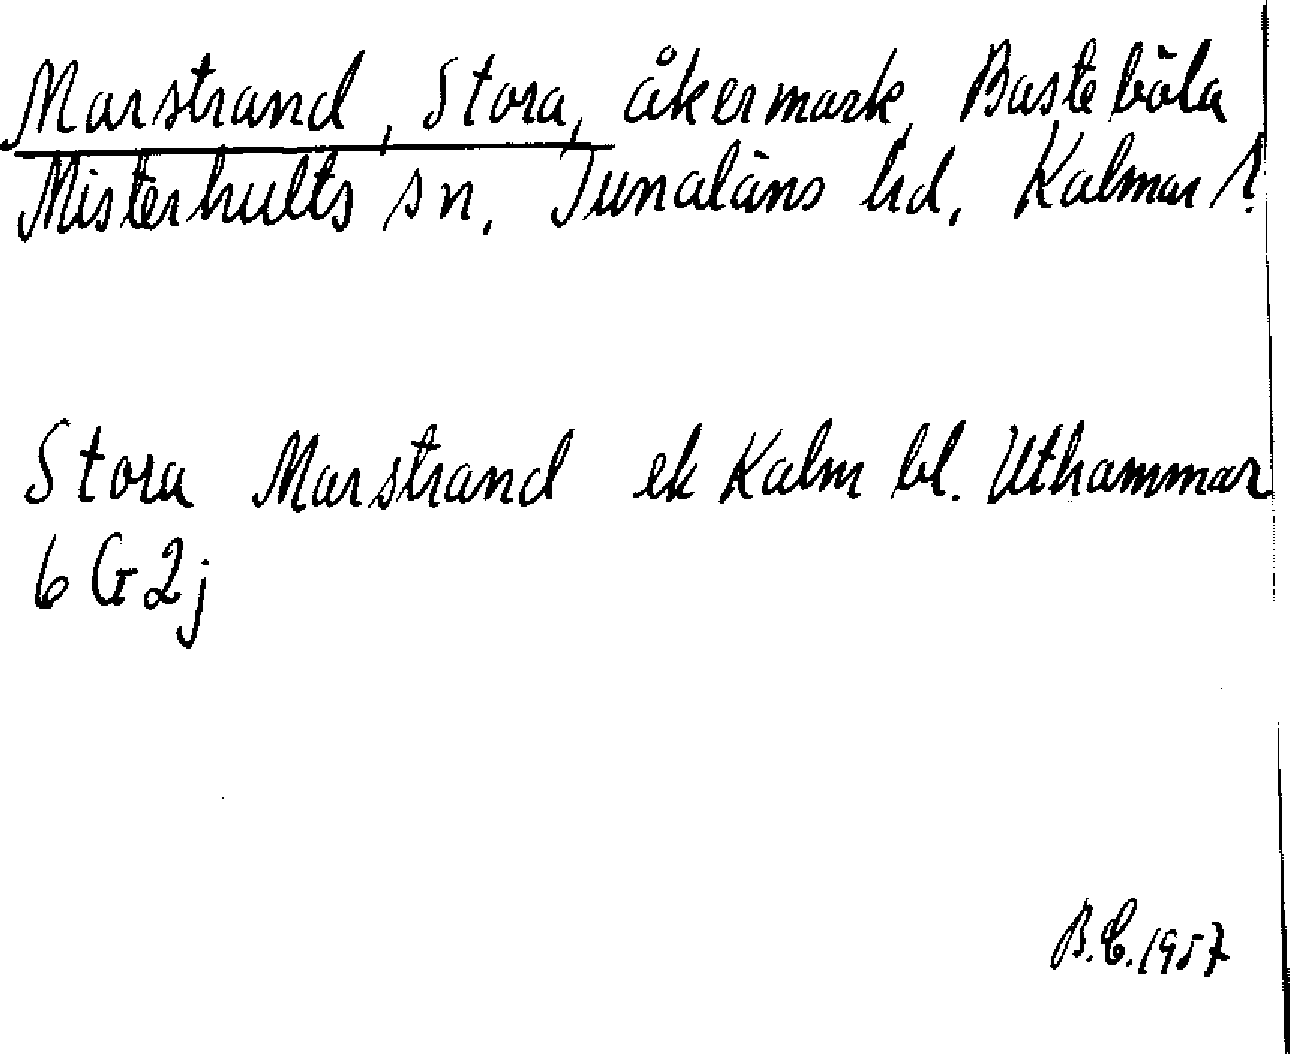 Marstrand, Stora, åkermark, Basteböla
Misterhults sn, Tunaläns hd, Kalmar l.
Stora Marstrand ek Kalm bl. Uthammar
6 G 2j
B.C. 1957